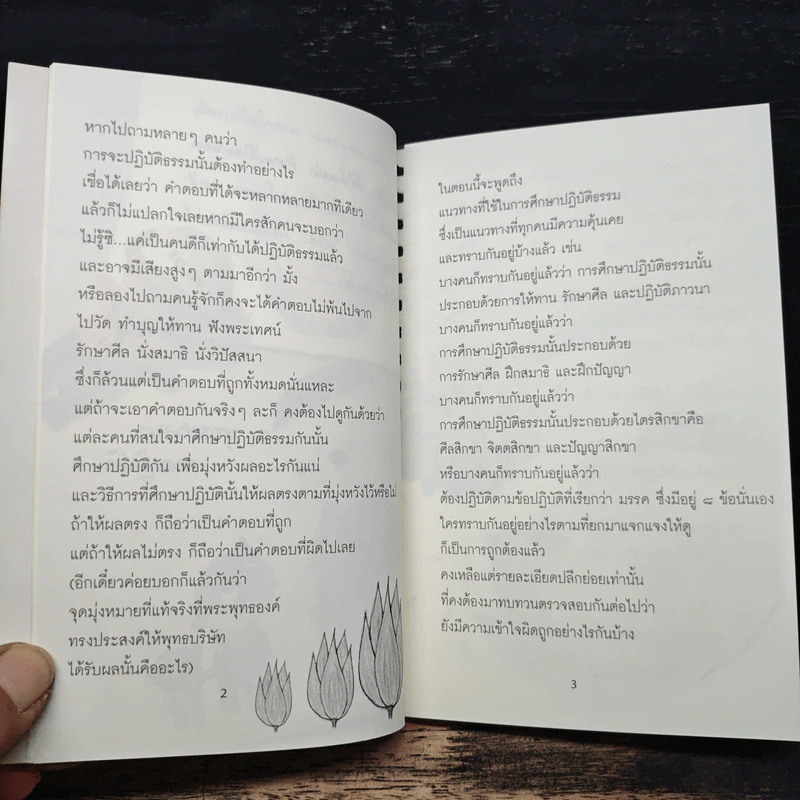 หากไปถามหลายๆ คนว่า
การจะปฏิบัติธรรมนั้นต้องทำอย่างไร
เชื่อได้เลยว่า คำตอบที่ได้จะหลากหลายมากทีเดียว
แล้วก็ไม่แปลกใจเลยหากมีใครสักคนจะบอกว่า
ไม่รู้ซิ...แค่เป็นคนดีก็เท่ากับได้ปฏิบัติธรรมแล้ว
และอาจมีเสียงสูงๆ ตามมาอีกว่า มั้ง
หรือลองไปถามคนรู้จักก็คงจะได้คำตอบไม่พ้นไปจาก
ไปวัด ทำบุญให้ทาน ฟังพระเทศน์
รักษาศีล นั่งสมาธิ นั่งวิปัสสนา
ซึ่งก็ล้วนแต่เป็นคำตอบที่ถูกทั้งหมดนั่นแหละ
แต่ถ้าจะเอาคำตอบกันจริงๆ ละก็ คงต้องไปดูกันด้วยว่า
แต่ละคนที่สนใจมาศึกษาปฏิบัติธรรมกันนั้น
ศึกษาปฏิบัติกัน เพื่อมุ่งหวังผลอะไรกันแน่
และวิธีการที่ศึกษาปฏิบัตินั้นให้ผลตรงตามที่มุ่งหวังไว้หรือไม่
ถ้าให้ผลตรง ก็ถือว่าเป็นคำตอบที่ถูก
แต่ถ้าให้ผลไม่ตรง ก็ถือว่าเป็นคำตอบที่ผิดไปเลย
(อีกเดี๋ยวค่อยบอกก็แล้วกันว่า
จุดมุ่งหมายที่แท้จริงที่พระพุทธองค์
ทรงประสงค์ให้พุทธบริษัท
ได้รับผลนั้นคืออะไร)
2
ในตอนนี้จะพูดถึง
แนวทางที่ใช้ในการศึกษาปฏิบัติธรรม
ซึ่งเป็นแนวทางที่ทุกคนมีความคุ้นเคย
และทราบกันอยู่บ้างแล้ว เช่น
บางคนก็ทราบกันอยู่แล้วว่า การศึกษาปฏิบัติธรรมนั้น
ประกอบด้วยการให้ทาน รักษาศีล และปฏิบัติภาวนา
บางคนก็ทราบกันอยู่แล้วว่า
การศึกษาปฏิบัติธรรมนั้นประกอบด้วย
การรักษาศีล ฝึกสมาธิ และฝึกปัญญา
บางคนก็ทราบกันอยู่แล้วว่า
การศึกษาปฏิบัติธรรมนั้นประกอบด้วยไตรสิกขาคือ
ศีลสิกขา จิตตสิกขา และปัญญาสิกขา
หรือบางคนก็ทราบกันอยู่แล้วว่า
ต้องปฏิบัติตามข้อปฏิบัติที่เรียกว่า มรรค ซึ่งมีอยู่ ๘ ข้อนั่นเอง
ใครทราบกันอยู่อย่างไรตามที่ยกมาแจกแจงให้ดู
ก็เป็นการถูกต้องแล้ว
คงเหลือแต่รายละเอียดปลีกย่อยเท่านั้น
ที่คงต้องมาทบทวนตรวจสอบกันต่อไปว่า
ยังมีความเข้าใจผิดถูกอย่างไรกันบ้าง
3